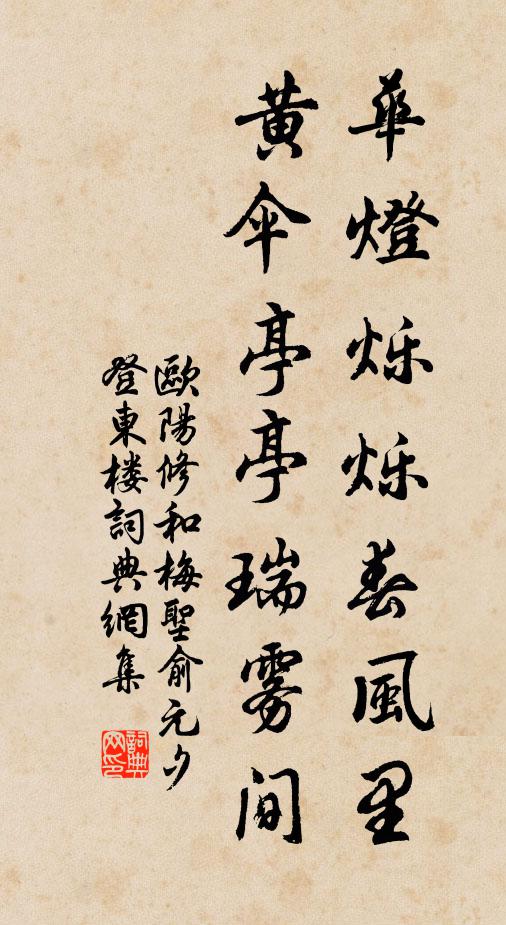 華燈烁烁春風里
黄伞亭亭瑞雾間
歐陽修和梅聖俞元夕
登東楼詞典網集
詞典网印